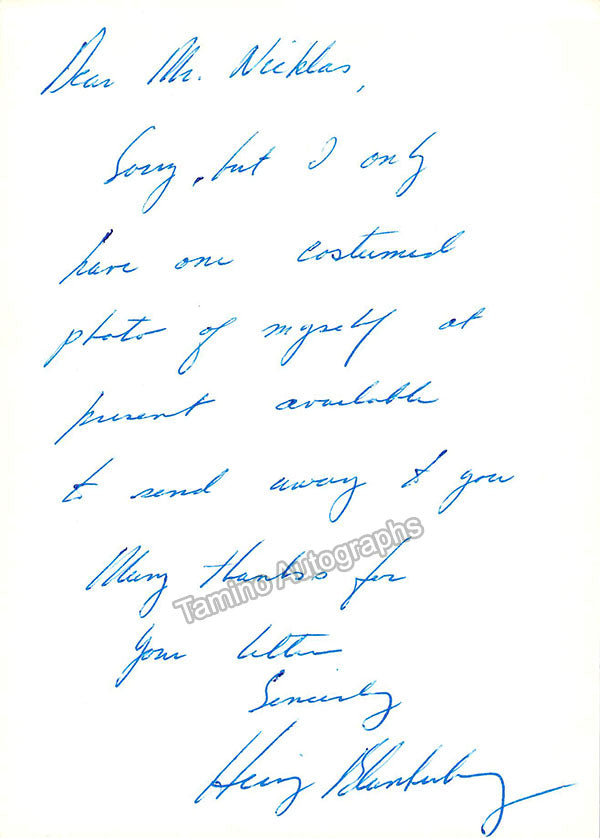 Dear Mr. Nicklas,
Sorry, but I only
have one costumed
photo of myself at
present available
to send away to you
Many thanks for
Tamino Autographs
your letter
Sincerely
Heinz Blankenburg